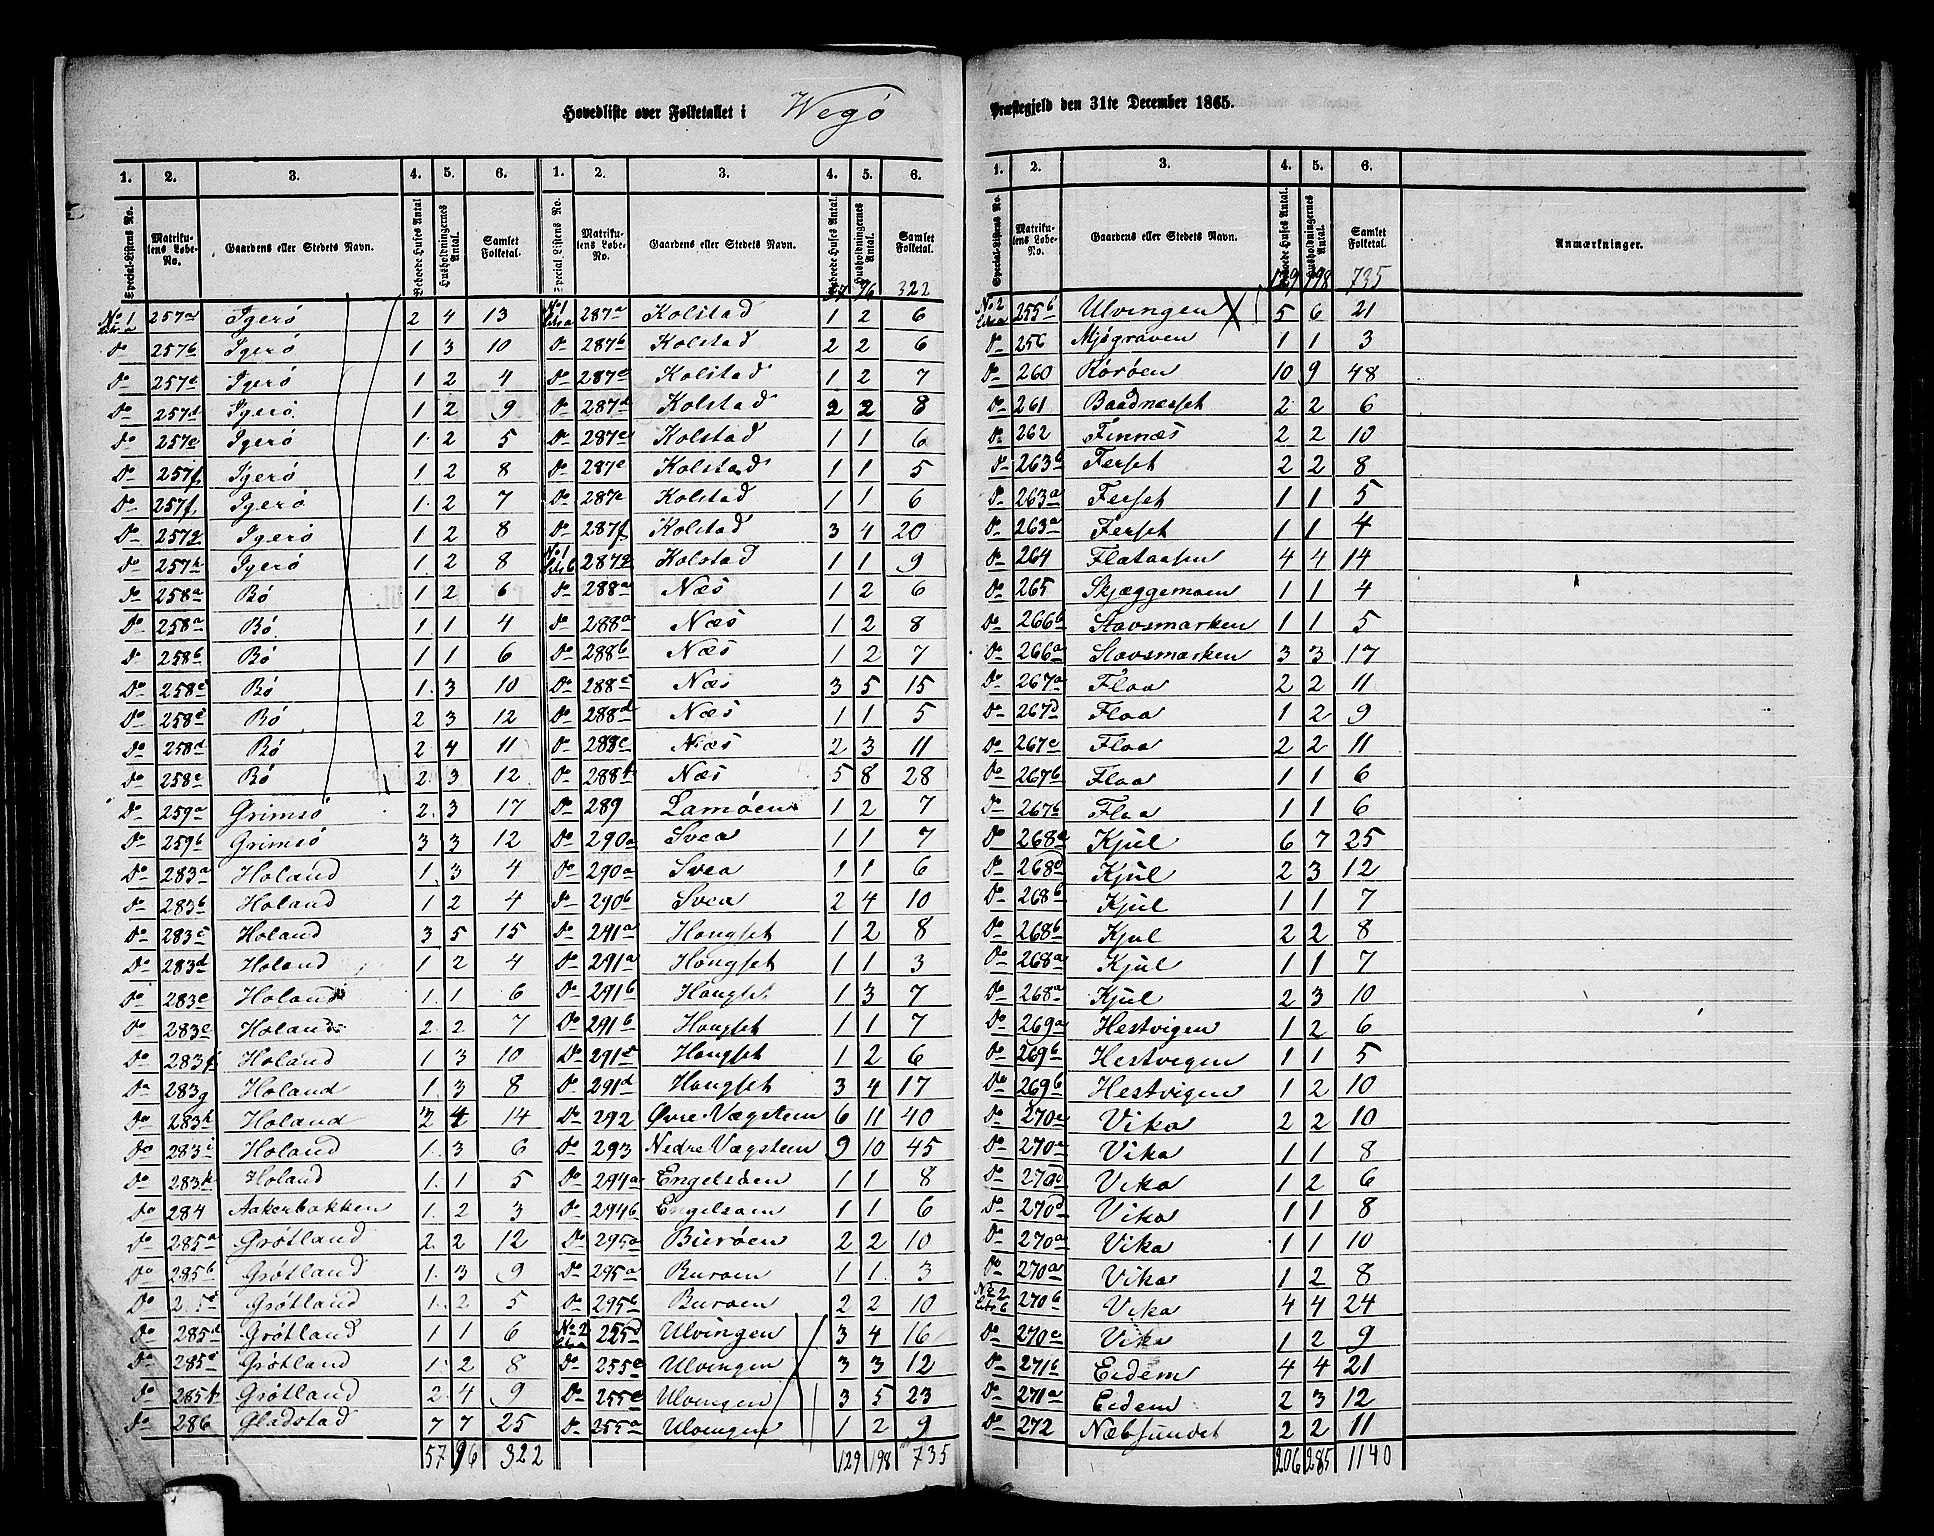 Hovedliste over Folketallet i Wegø Præstegjeld den 31te December 1865.
1. 2. 3. 4. 5. 6. 1. 2. 3. 4. 5. 6.
Special-Listens No. Matrikulens Løbe-No. Gaardens eller Stedets Navn. Beboede Huses Antal. Husholdningernes Antal. Samlet Folketal. Special Listens No. Matrikulens Løbe-No. Gaardens eller Stedets Navn. Beboede Huses Antal. Husholdningernes Antal. Samlet Folketal.
57 96 322
No 1 Litr a 257a Igerø 2 4 13 No 1 Litr a 287a Kolstad 1 2 6
Do 257b Igerø 1 3 10 Do 287b Kolstad 2 2 6
Do 257c Igerø 1 2 4 Do 287c Kolstad 1 2 7
Do 257d Igerø 1 2 9 Do 287d Kolstad 2 2 8
Do 257e Igerø 1 2 5 Do 287e Kolstad 1 1 6
Do 257f Igerø 1 2 8 Do 287e Kolstad 1 1 5
Do 257f Igerø 1 2 7 Do 287e Kolstad 1 1 6
Do 257g Igerø 1 2 8 Do 287f Kolstad 3 4 20
Do 257h Igerø 1 2 8 No 1 Litr b 287g Kolstad 1 1 9
Do 258a Bø 1 2 6 Do 288a Næs 1 2 6
Do 258a Bø 1 1 4 Do 288a Næs 1 2 8
Do 258b Bø 1 1 6 Do 288b Næs 1 2 7
Do 258c Bø 1 3 10 Do 288c Næs 3 5 15
Do 258c Bø 2 3 12 Do 288d Næs 1 1 5
Do 258d Bø 2 4 11 Do 288e Næs 2 3 11
Do 258e Bø 2 3 12 Do 288f Næs 5 8 28
Do 259a Grimsø 2 3 17 Do 289 Lamøen 1 2 7
Do 259b Grimsø 3 3 12 Do 290a Svea 1 1 7
Do 283a Holand 1 3 4 Do 290a Svea 1 1 6
Do 283b Holand 1 2 4 Do 290b Svea 2 4 10
Do 283c Holand 3 5 15 Do 291a Hongset 1 2 8
Do 283d Holand 1 2 4 Do 291a Hongset 1 1 3
Do 283e Holand 1 1 6 Do 291b Hongset 1 3 7
Do 283e Holand 2 2 7 Do 291b Hongset 1 1 7
Do 283f Holand 1 3 10 Do 291c Hongset 1 2 6
Do 283g Holand 1 3 8 Do 291d Hongset 3 4 17
Do 283h Holand 2 4 14 Do 292 Øvre Vægstem 6 11 40
Do 283i Holand 1 3 6 Do 293 Nedre Vægstem 9 10 45
Do 283k Holand 1 1 5 Do 294a Engelsøen 1 1 8
Do 284 Aakerbakken 1 2 3 Do 294b Engelsøen 1 1 6
Do 285a Grøtland 2 2 12 Do 295a Burøen 2 2 10
Do 285b Grøtland 1 3 9 Do 295a Burøen 1 1 3
Do Grøtland 1 2 5 Do 295b Burøen 2 2 10
Do 285d Grøtland 1 1 6 No 2 Litr a 255d Ulvingen 3 4 16
Do 285e Grøtland 1 2 8 Do 255e Ulvingen 3 3 12
Do 285f Grøtland 2 4 9 Do 255c Ulvingen 3 5 23
Do 286 Gladstad 7 7 25 Do 255a Ulvingen 1 2 9
57 96 322 129 198 735
1. 2. 3. 4. 5. 6.
Special-Listens No. Matrikulens Løbe-No. Gaardens eller Stedets Navn. Beboede Huses Antal. Husholdningernes Antal. Samlet Folketal. Anmærkninger.
129 198 735
No 2 Litr a 255b Ulvingen 5 6 21
Do 256 Mjøgraven 1 1 3
Do 260 Rørøen 10 9 48
Do 261 Baadnæsset 2 2 6
Do 262 Finnæs 2 2 10
Do 263b Ferset 2 2 8
Do 263a Ferset 1 1 5
Do 263a Ferset 1 1 4
Do 264 Flataasen 4 4 14
Do 265 Skjæggemoen 1 1 4
Do 266b Stavsmarken 1 1 5
Do 266a Stavsmarken 3 3 17
Do 267a Flaa 2 2 11
Do 267d Flaa 1 2 9
Do 267c Flaa 2 2 11
Do 267b Flaa 1 1 6
Do 267b Flaa 1 1 6
Do 268a Kjul 6 7 25
Do 268d Kjul 2 3 12
Do 268b Kjul 1 1 7
Do 268b Kjul 2 2 8
Do 268a Kjul 1 1 7
Do 268a Kjul 2 3 10
Do 269a Hestvigen 1 2 6
Do 269b Hestvigen 1 1 5
Do 269b Hestvigen 1 2 10
Do 270e Vika 2 2 10
Do 270a Vika 1 1 8
Do 270d Vika 1 2 6
Do 270d Vika 1 1 8
Do 270a Vika 1 1 10
Do 270a Vika 1 2 8
No 2 Litr b 270b Vika 4 4 24
Do 270c Vika 1 2 9
Do 271b Eidem 4 4 21
Do 271a Eidem 2 3 12
Do 272 Næbsundet 2 2 11
206 285 1140